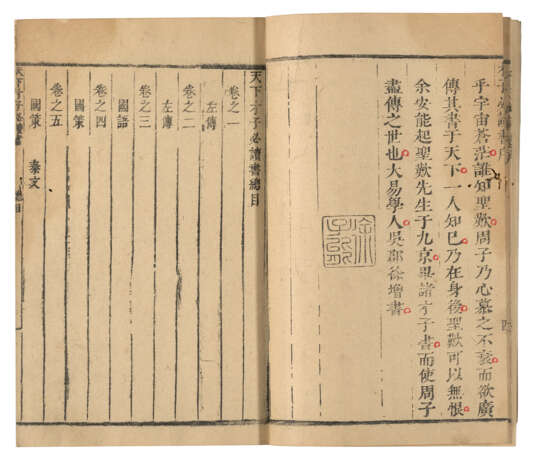 乎宇宙蒼茫誰知聖歎周子乃心慕之不衰而欲廣
傳其書于天下一人知巳乃在身後聖歎可以無恨
余安能起聖歎先生于九京畀諸才子書而使周子
盡傳之世也大易學人吳郡徐增書
天下才子必讀書總目
卷之一
左傳
卷之二
左傳
卷之三
國語
卷之四
國策
卷之五
國策 秦文
天下才子必讀書 總目